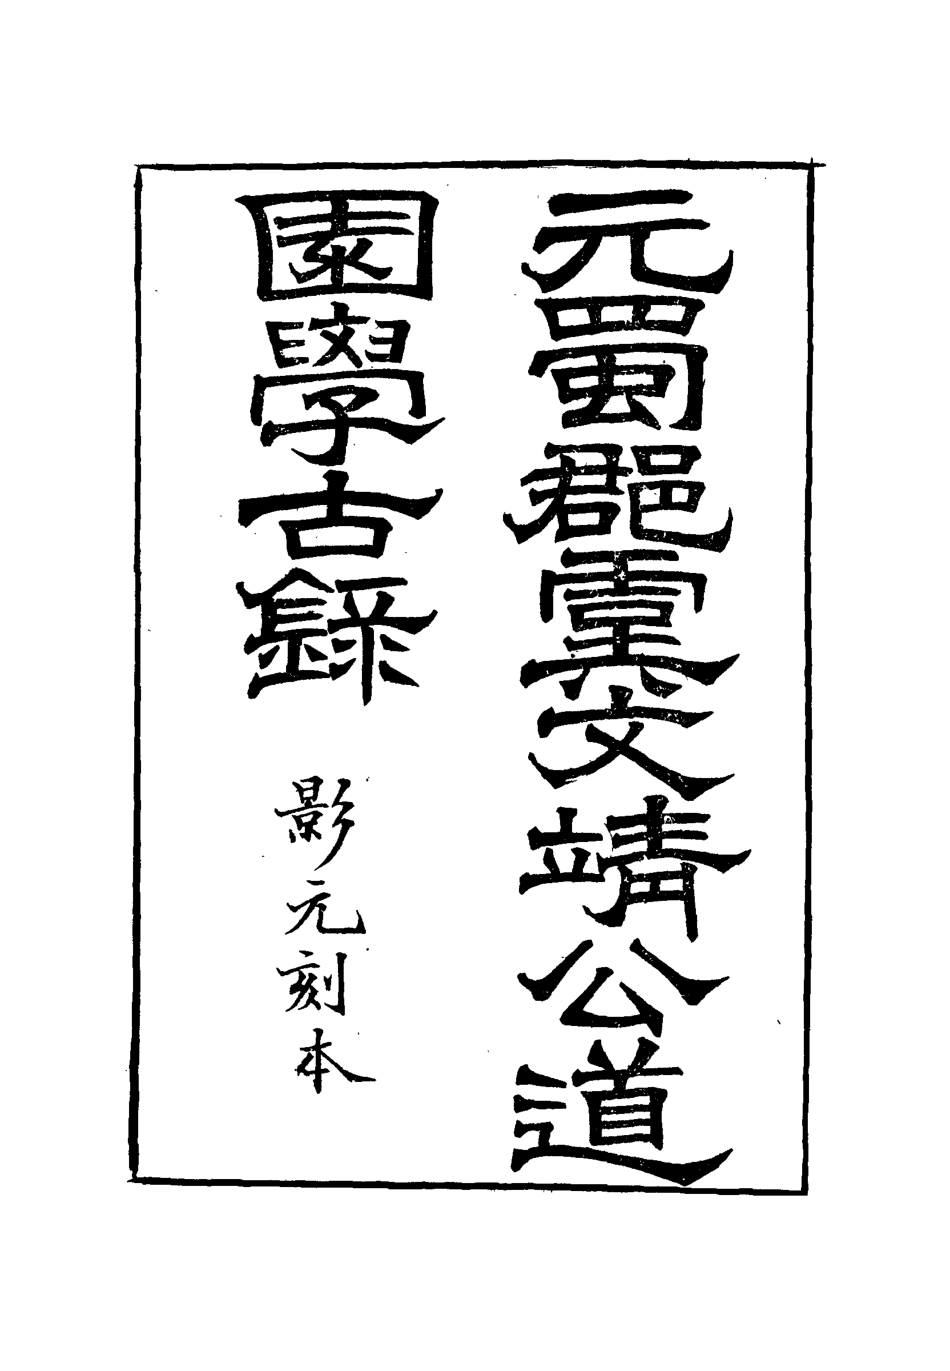 元蜀郡虞文靖公道
園學古錄
影元刻本